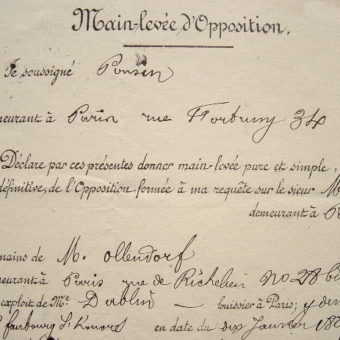 Main-levée d'Opposition.
Je soussigné Ponsin
meurant à Paris rue Fortuny 34
Déclare par ces présentes donner main-levée pure et simple
définitive, de l'Opposition formée à ma requête sur le sieur M
demeurant à P
mains de M. Ollendorf
meurant à Paris rue de Richelieu No 28 bi
exploit de Me Dablin — huissier à Paris; y dem
faubourg St honoré en date du dix Janvier 18